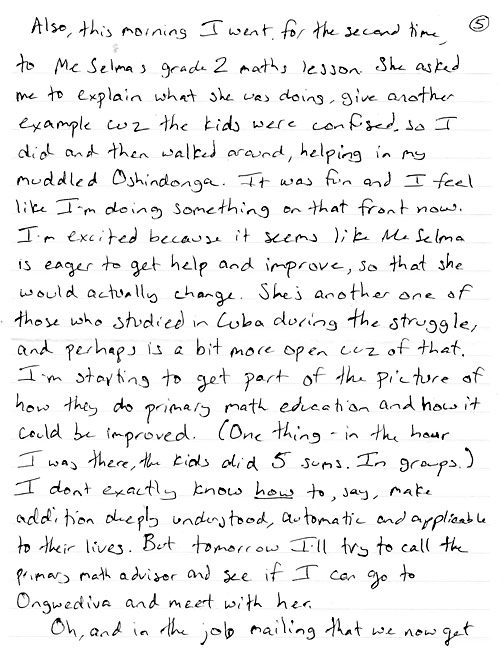 Also, this morning I went, for the second time, ⑤
to Me Selma's grade 2 maths lesson. She asked
me to explain what she was doing, give another
example cuz the kids were confused, so I
did and then walked around, helping in my
muddled Oshindonga. It was fun and I feel
like I'm doing something on that front now.
I'm excited because it seems like Me Selma
is eager to get help and improve, so that she
would actually change. She's another one of
those who studied in Cuba during the struggle,
and perhaps is a bit more open cuz of that.
I'm starting to get part of the picture of
how they do primary math education and how it
could be improved. (One thing - in the hour
I was there, the kids did 5 sums. In groups.)
I don't exactly know how to, say, make
addition deeply understood, automatic and applicable
to their lives. But tomorrow I'll try to call the
primary math advisor and see if I can go to
Ongwediva and meet with her.
Oh, and in the job mailing that we now get